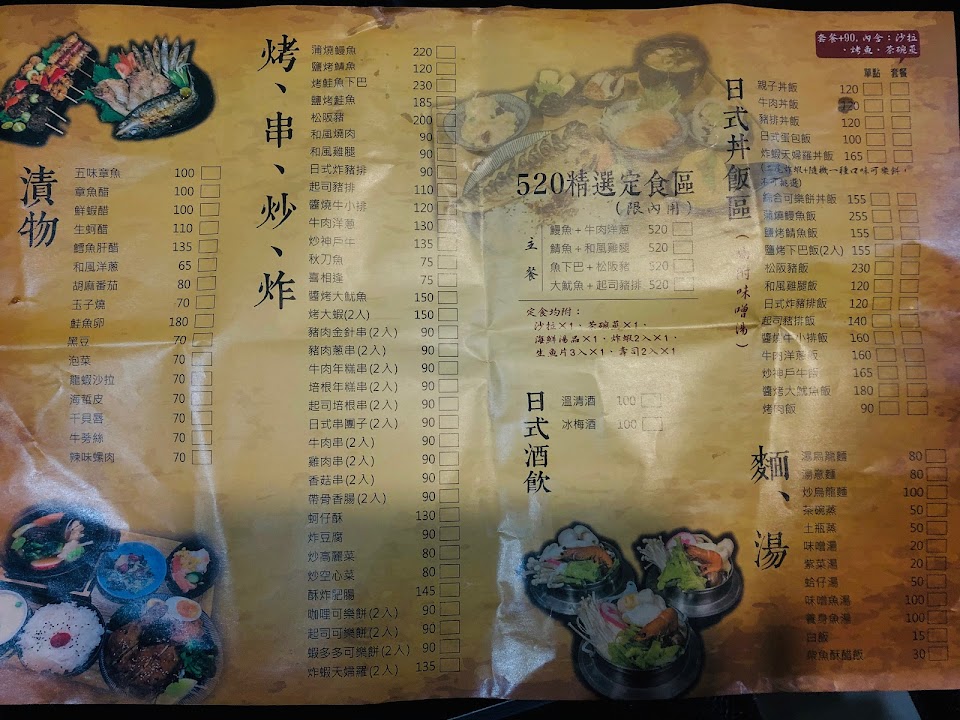 漬物
五味章魚 100
章魚醋 100
鮮蝦醋 100
生蚵醋 110
鱈魚肝醋 135
和風洋蔥 65
胡麻番茄 80
玉子燒 70
鮭魚卵 180
黑豆 70
泡菜 70
龍蝦沙拉 70
海蜇皮 70
干貝唇 70
牛蒡絲 70
辣味螺肉 70
烤、串、炒、炸
蒲燒鰻魚 220
鹽烤鯖魚 120
烤鮭魚下巴 230
鹽烤鮭魚 185
松阪豬 200
和風燒肉 90
和風雞腿 90
日式炸豬排 90
起司豬排 110
醬燒牛小排 120
牛肉洋蔥 130
炒神戶牛 135
秋刀魚 75
喜相逢 75
醬烤大魷魚 150
烤大蝦(2入) 150
豬肉金針串(2入) 90
豬肉蔥串(2入) 90
牛肉年糕串(2入) 90
培根年糕串(2入) 90
起司培根串(2入) 90
日式串團子(2入) 90
牛肉串(2入) 90
雞肉串(2入) 90
香菇串(2入) 90
帶骨香腸(2入) 90
蚵仔酥 130
炸豆腐 90
炒高麗菜 80
炒空心菜 80
酥炸肥腸 145
咖哩可樂餅(2入) 90
起司可樂餅(2入) 90
蝦多多可樂餅(2入) 90
炸蝦天婦羅(2入) 135
520精選定食區
(限內用)
主餐
鰻魚+牛肉洋蔥 520
鯖魚+和風雞腿 520
魚下巴+松阪豬 520
大魷魚+起司豬排 520
定食均附:
沙拉×1、茶碗蒸×1、
海鮮湯品×1、炸蝦2入×1、
生魚片3入×1、壽司2入×1
日式酒飲
溫清酒 100
冰梅酒 100
套餐+90,內含:沙拉
、烤魚、茶碗蒸
日式丼飯區(均附味噌湯)
單點 套餐
親子丼飯 120
牛肉丼飯 120
豬排丼飯 120
日式蛋包飯 100
炸蝦天婦羅丼飯 165
綜合可樂餅丼飯 155
蒲燒鰻魚飯 255
鹽烤鯖魚飯 155
鹽烤下巴飯(2入) 155
松阪豬飯 230
和風雞腿飯 120
日式炸豬排飯 120
起司豬排飯 140
醬燒牛小排飯 160
牛肉洋蔥飯 160
炒神戶牛飯 165
醬烤大魷魚飯 180
烤肉飯 90
麵、湯
湯烏龍麵 80
湯意麵 80
炒烏龍麵 100
茶碗蒸 50
土瓶蒸 50
味噌湯 20
紫菜湯 20
蛤仔湯 50
味噌魚湯 100
養身魚湯 100
白飯 15
柴魚酥醋飯 30